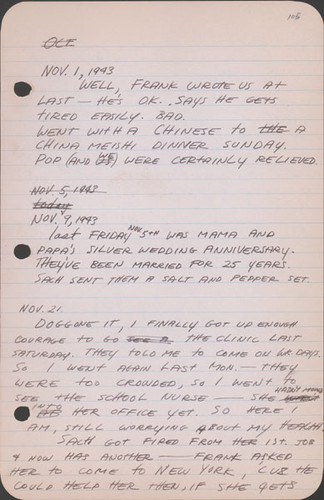 108
OCT
NOV. 1, 1943
WELL, FRANK WROTE US AT
LAST — HE'S OK. SAYS HE GETS
TIRED EASILY. BAD.
WENT WITH A CHINESE TO THE A
CHINA MEISHI DINNER SUNDAY.
POP (AND US) WE WERE CERTAINLY RELIEVED.
NOV 5, 1943
today
NOV. 9, 1943
last FRIDAY NOV 5TH WAS MAMA AND
PAPA'S SILVER WEDDING ANNIVERSARY.
THEY'VE BEEN MARRIED FOR 25 YEARS.
SACH SENT THEM A SALT AND PEPPER SET.
NOV. 21.
DOGGONE IT, I FINALLY GOT UP ENOUGH
COURAGE TO GO THE CLINIC LAST
SATURDAY. THEY TOLD ME TO COME ON WK. DAYS.
SO I WENT AGAIN LAST MON. — THEY
WERE TOO CROWDED, SO I WENT TO
SEE THE SCHOOL NURSE — SHE HADN'T MOVED
INTO HER OFFICE YET. SO HERE I
AM, STILL WORRYING ABOUT MY HEALTH.
SACH GOT FIRED FROM HER 1ST. JOB
& NOW HAS ANOTHER — FRANK ASKED
HER TO COME TO NEW YORK, CUZ HE
COULD HELP HER THEN, IF SHE GETS